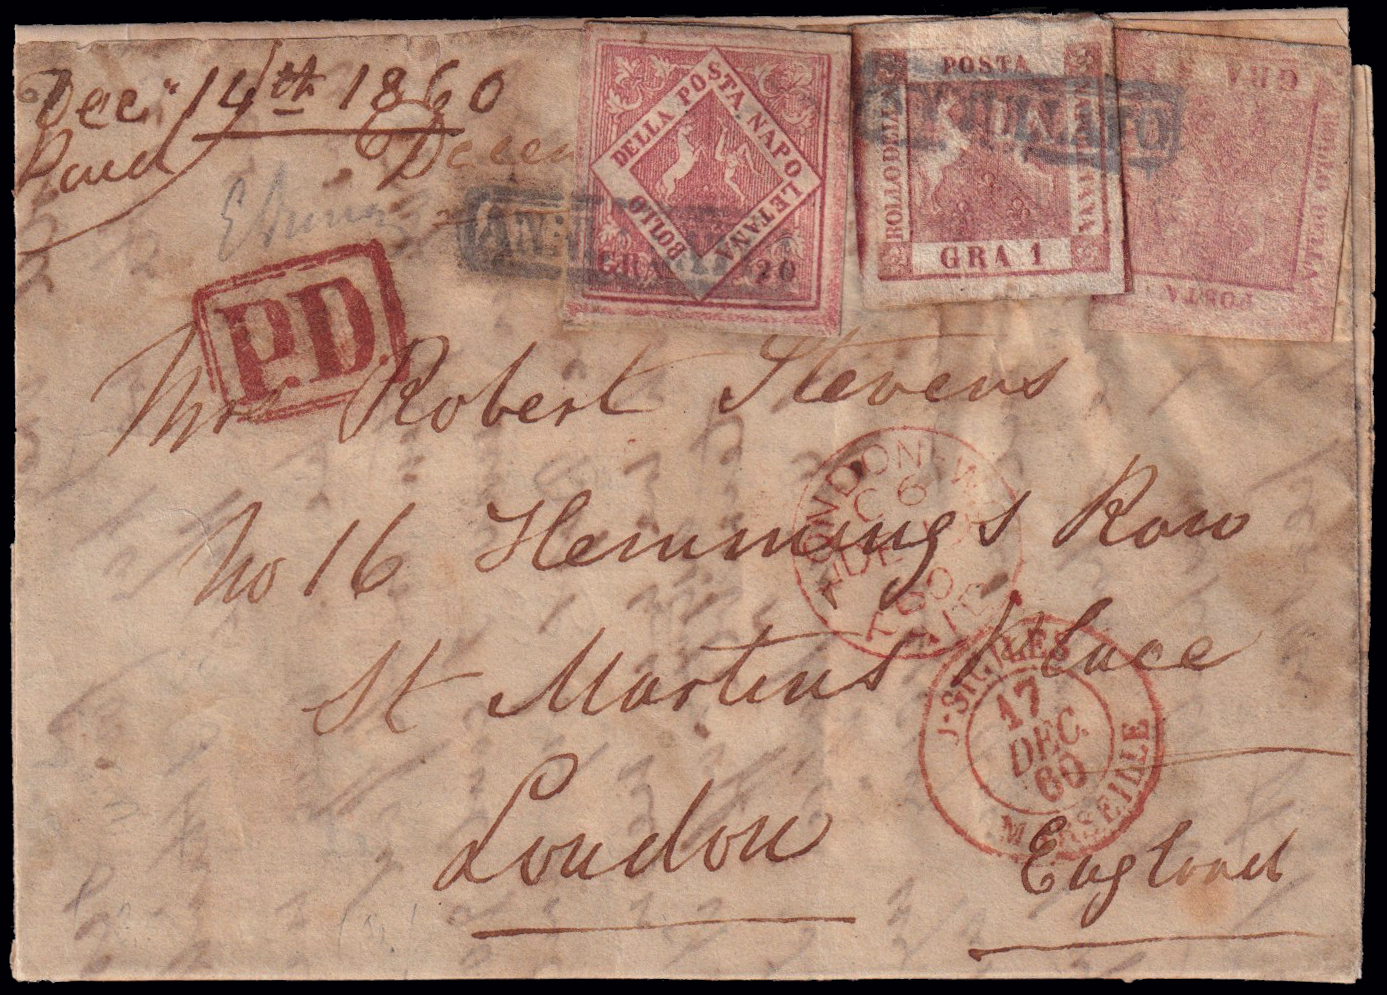 Dec. 14th 1860
Paid
P.D.
BOLLO DELLA POSTA NAPOLETANA
GRANA 20
ANNULLATO
POSTA
BOLLO DELLA
NAPOLETANA
GRA 1
ANNULLATO
GRA
POSTA
Mrs Robert Stevens
No 16 Hemmings Row
St Martins Place
London
England
LONDON-W
C 6
DE
60
PAID
SICILES
17
DEC.
60
MARSEILLE